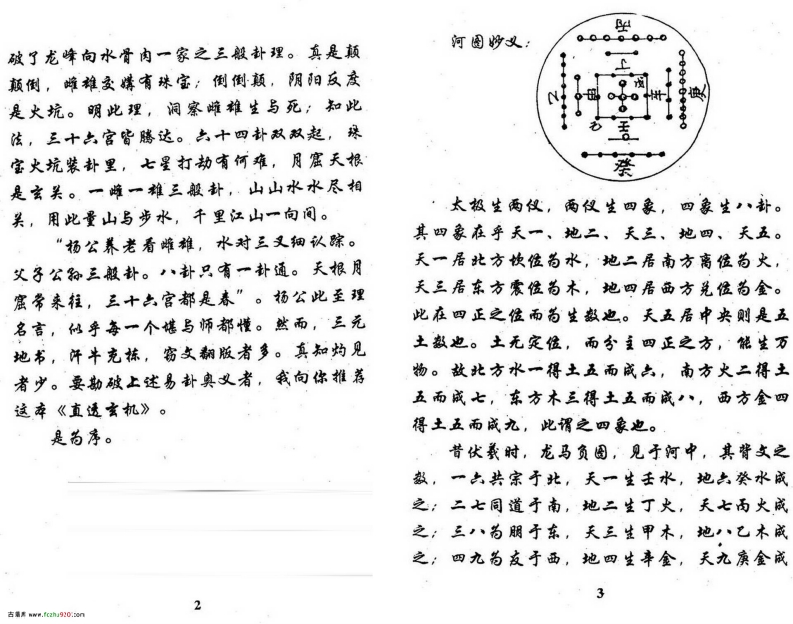 破了龙峰向水骨肉一家之三般卦理。真是颠
颠倒，雌雄交媾有珠宝；倒倒颠，阴阳反度
是火坑。明此理，洞察雌雄生与死；知此
法，三十六宫皆腾达。六十四卦双双起，珠
宝火坑装卦里，七星打劫有何难，月窟天根
是玄关。一雌一雄三般卦，山山水水尽相
关，用此量山与步水，千里江山一向间。
“杨公养老看雌雄，水对三叉细认踪。
父子公孙三般卦。八卦只有一卦通。天根月
窟常来往，三十六宫都是春”。杨公此至理
名言，似乎每一个堪与师都懂。然而，三元
地书，汗牛充栋，窃文翻版者多。真知灼见
者少。要勘破上述易卦奥义者，我向你推荐
这本《直透玄机》。
是为序。
2
吉屋库 www.fczhu920.com
河图妙义：
丙
丁
乙
甲
戊
己
辛
庚
壬
癸
太极生两仪，两仪生四象，四象生八卦。
其四象在乎天一、地二、天三、地四、天五。
天一居北方坎位为水，地二居南方离位为火，
天三居东方震位为木，地四居西方兑位为金。
此在四正之位而为生数也。天五居中央则是五
土数也。土无定位，而分主四正之方，能生万
物。故北方水一得土五而成六，南方火二得土
五而成七，东方木三得土五而成八，西方金四
得土五而成九，此谓之四象也。
昔伏羲时，龙马负图，见于河中，其背文之
数，一六共宗于北，天一生壬水，地六癸水成
之；二七同道于南，地二生丁火，天七丙火成
之；三八为朋于东，天三生甲木，地八乙木成
之；四九为友于西，地四生辛金，天九庚金成
3